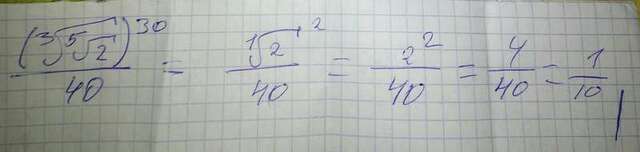 (∛(⁵√2))³⁰/40 = ¹√2²/40 = 2²/40 = 4/40 = 1/10